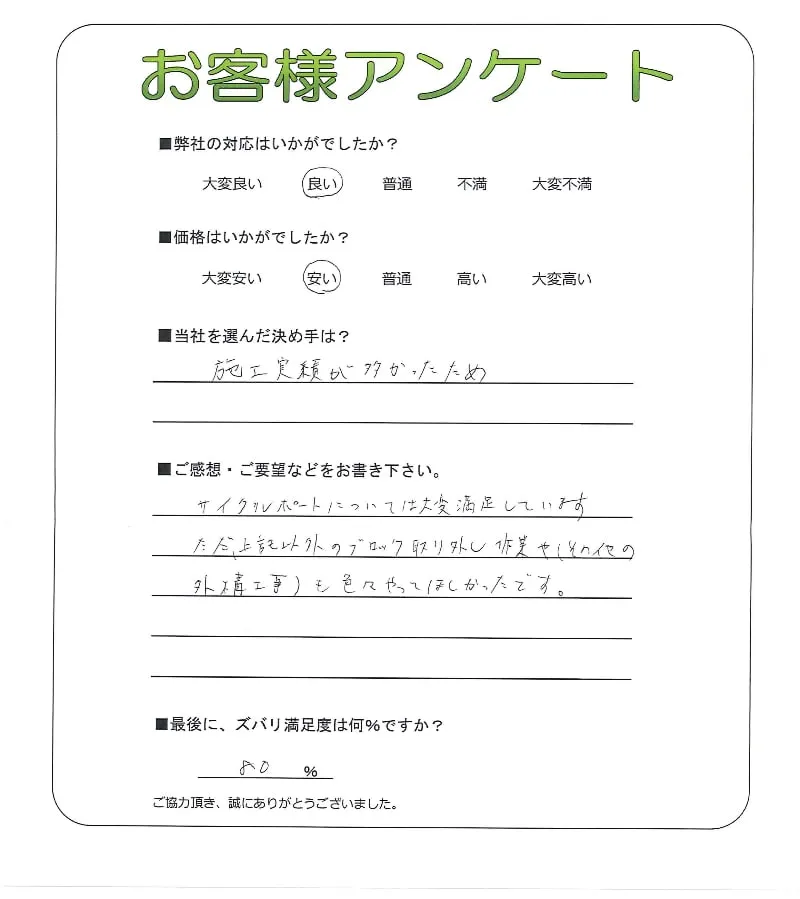 お客様アンケート
■弊社の対応はいかがでしたか？
大変良い 良い 普通 不満 大変不満
■価格はいかがでしたか？
大変安い 安い 普通 高い 大変高い
■当社を選んだ決め手は？
施工実績が多かったため
■ご感想・ご要望などをお書き下さい。
サイクルポートについては大変満足しています
ただ、上記以外のブロック取り外し作業や(その他の
外構工事)も色々やってほしかったです。
■最後に、ズバリ満足度は何％ですか？
80 %
ご協力頂き、誠にありがとうございました。